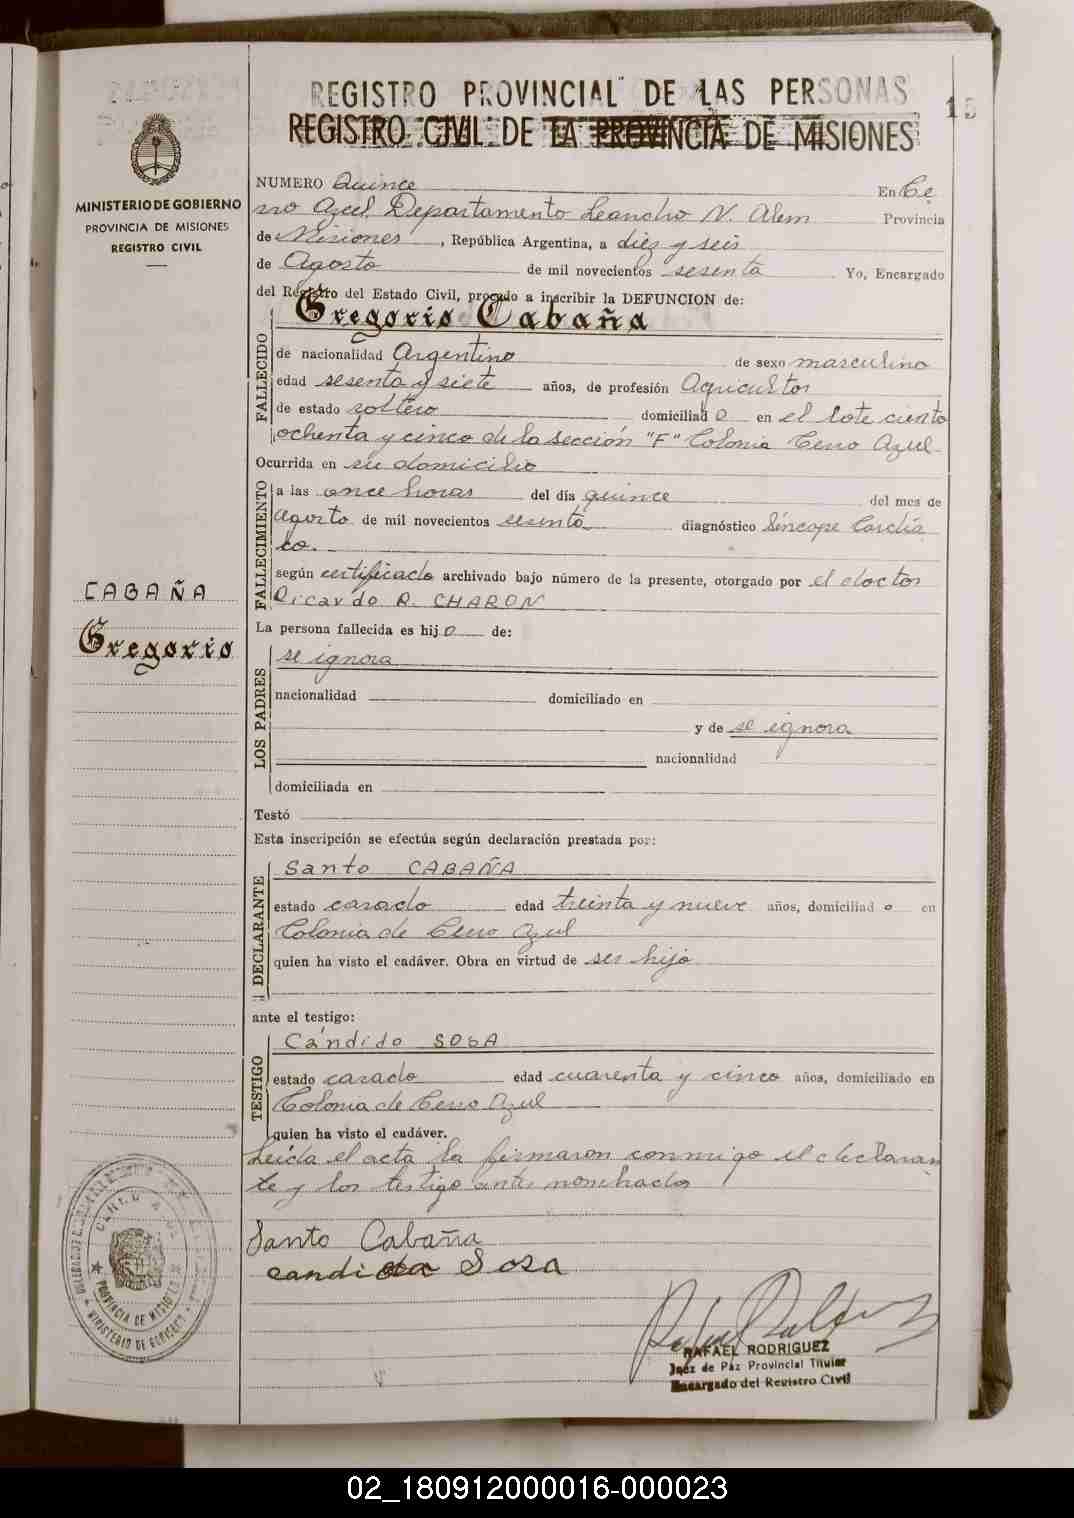 REGISTRO PROVINCIAL DE LAS PERSONAS
15
REGISTRO CIVIL DE LA PROVINCIA DE MISIONES
MINISTERIO DE GOBIERNO
PROVINCIA DE MISIONES
REGISTRO CIVIL
NUMERO Quince En Ce
rro Azul Departamento Leandro N. Alem Provincia
de Misiones, República Argentina, a diez y seis
de Agosto de mil novecientos sesenta Yo, Encargado
del Registro del Estado Civil, procedo a inscribir la DEFUNCION de:
Gregorio Cabaña
FALLECIDO
de nacionalidad Argentino de sexo masculino
edad sesenta y siete años, de profesión Agricultor
de estado soltero domiciliado en el lote ciento
ochenta y cinco de la sección "F" Colonia Cerro Azul
Ocurrida en su domicilio
FALLECIMIENTO
a las once horas del día quince del mes de
Agosto de mil novecientos sesenta diagnóstico Síncope Cardía
co.
según certificado archivado bajo número de la presente, otorgado por el doctor
Ricardo R. CHARON
CABAÑA
Gregorio
La persona fallecida es hijo de:
LOS PADRES
se ignora
nacionalidad domiciliado en
y de se ignora
nacionalidad
domiciliada en
Testó
Esta inscripción se efectúa según declaración prestada por:
DECLARANTE
Santo CABAÑA
estado casado edad treinta y nueve años, domiciliado en
Colonia de Cerro Azul
quien ha visto el cadáver. Obra en virtud de ser hijo
ante el testigo:
TESTIGO
Cándido SOSA
estado casado edad cuarenta y cinco años, domiciliado en
Colonia de Cerro Azul
quien ha visto el cadáver.
Leída el acta la firmaron conmigo el declaran
te y los testigo antes nombrados
Santo Cabaña
candido Sosa
RAFAEL RODRIGUEZ
Juez de Paz Provincial Titular
Encargado del Registro Civil
PROVINCIA DE MISIONES
MINISTERIO DE GOBIERNO
02_180912000016-000023